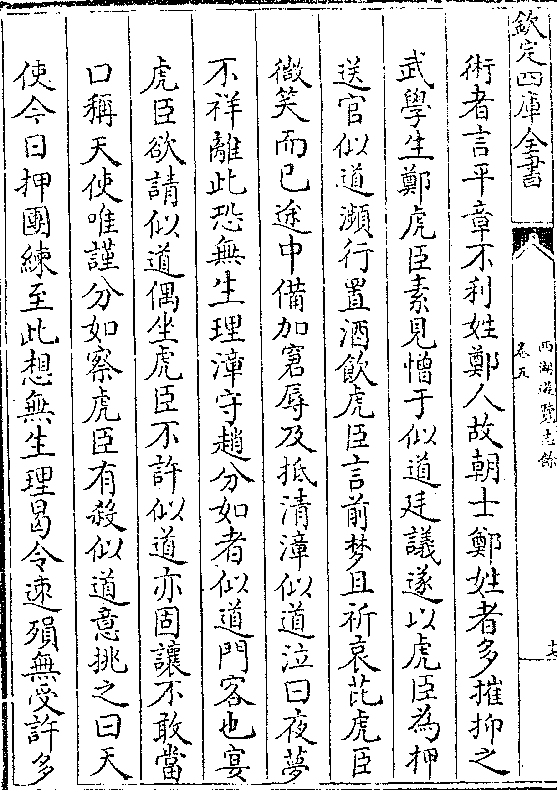 欽定四庫全書
西湖遊覽志餘
卷五
術者言平章不利姓鄭人故朝士鄭姓者多摧抑之
武學生鄭虎臣素見憎于似道廷議遂以虎臣為押
送官似道瀕行置酒飲虎臣言前梦且祈哀芘虎臣
微笑而已途中備加窘辱及抵清漳似道泣曰夜夢
不祥離此恐無生理漳守趙分如者似道門客也宴
虎臣欲請似道偶坐虎臣不許似道亦固讓不敢當
口稱天使唯謹分如察虎臣有殺似道意挑之曰天
使今日押團練至此想無生理曷令速殞無受許多